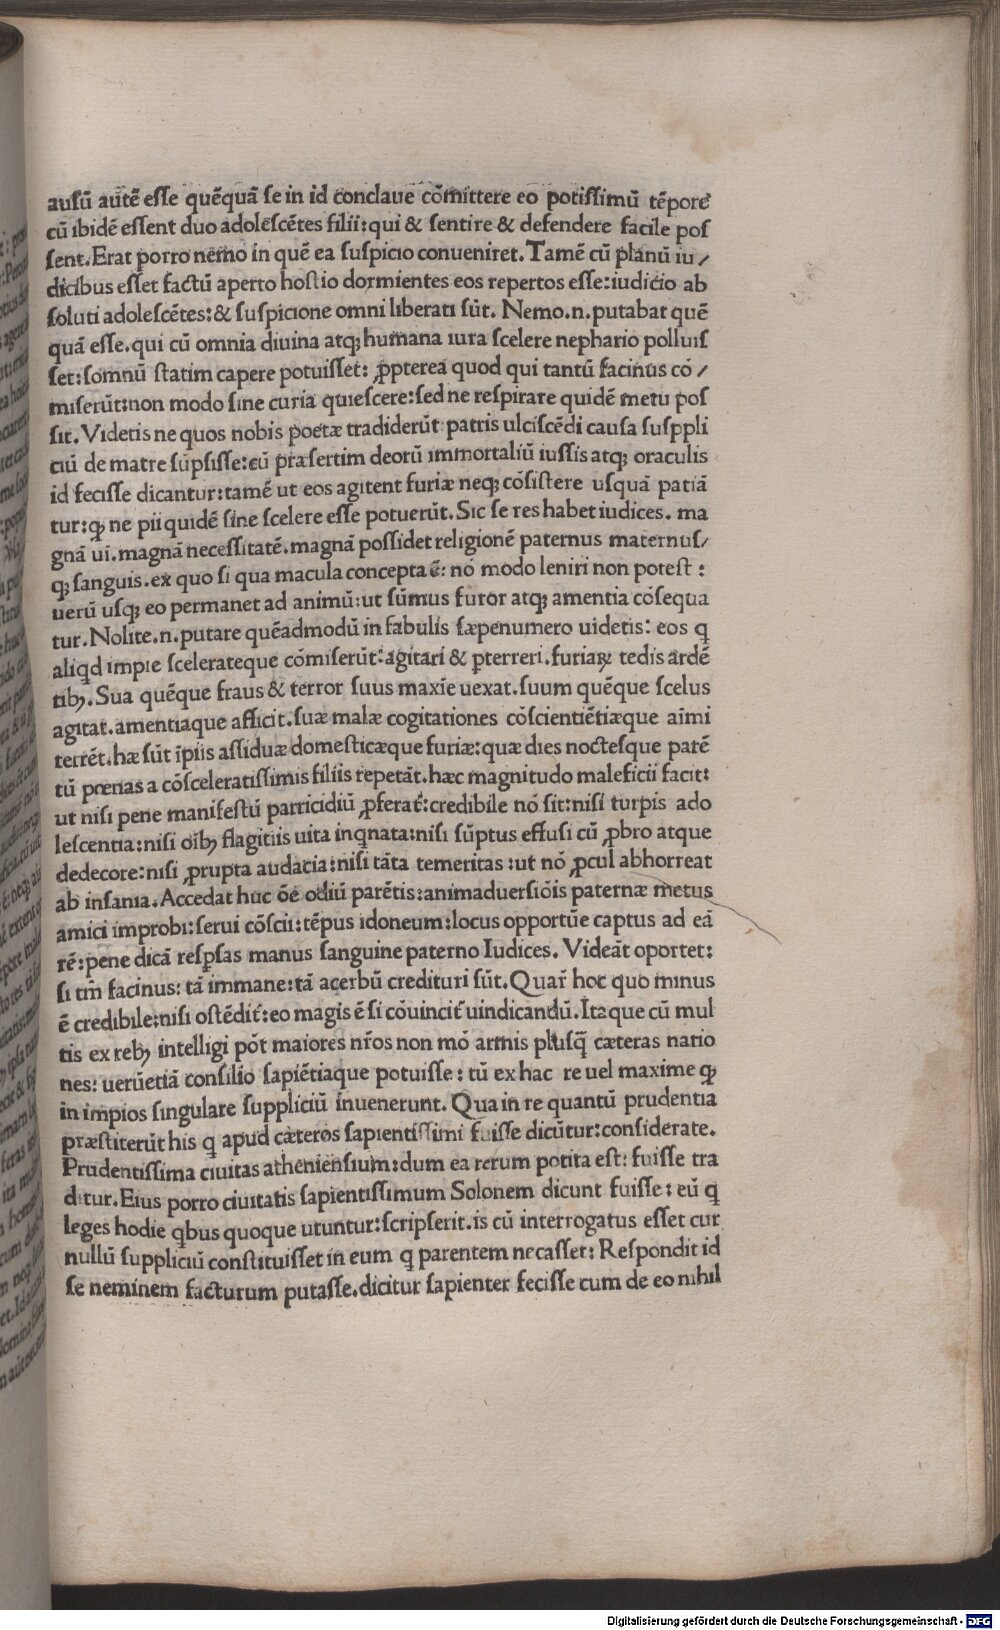 ausū autē esse quēquā se in id conclaue cōmittere eo potissimū tēpore
cū ibidē essent duo adolescētes filii: qui & sentire & defendere facile pos
sent. Erat porro nemo in quē ea suspicio conueniret. Tamē cū planū iu/
dicibus esset factū aperto hostio dormientes eos repertos esse: iudicio ab
soluti adolescētes: & suspicione omni liberati sūt. Nemo .n. putabat quē
quā esse. qui cū omnia diuina atqꝫ humana iura scelere nephario polluis
set: somnū statim capere potuisset: ꝓpterea quod qui tantū facinus cō/
miserūt: non modo sine curia quiescere: sed ne respirare quidē metu pos
sit. Videtis ne quos nobis poetæ tradiderūt patris ulciscēdi causa suppli
ciū de matre sūpsisse: cū præsertim deorū immortaliū iussis atqꝫ oraculis
id fecisse dicantur: tamē ut eos agitent furiæ neqꝫ cōsistere usquā patiā
tur: qꝫ ne pii quidē sine scelere esse potuerūt. Sic se res habet iudices. ma
gnā ui. magnā necessitatē. magnā possidet religionē paternus maternus/
qꝫ sanguis. ex quo si qua macula concepta ē: nō modo leniri non potest:
uerū usqꝫ eo permanet ad animū: ut sūmus furor atqꝫ amentia cōsequa
tur. Nolite .n. putare quēadmodū in fabulis sæpenumero uidetis: eos q̄
aliqd impie scelerateque cōmiserūt: agitari & ꝑterreri. furiaꝝ tedis ardē
tibꝫ. Sua quēque fraus & terror suus maxīe uexat. suum quēque scelus
agitat. amentiaque afficit. suæ malæ cogitationes cōscientiētiæque aīmi
terrēt. hæ sūt īpiis assiduæ domesticæque furiæ: quæ dies noctesque parē
tū pœnas a cōsceleratissimis filiis repetāt. hæc magnitudo maleficii facit:
ut nisi pene manifestū parricidiū ꝓferat̄: credibile nō sit: nisi turpis ado
lescentia: nisi oībꝫ flagitiis uita inqnata: nisi sūptus effusi cū ꝓbro atque
dedecore: nisi ꝓrupta audacia: nisi tāta temeritas: ut nō ꝓcul abhorreat
ab insania. Accedat huc ōē odiū parētis: animaduersiōis paternæ metus
amici improbi: serui cōscii: tēpus idoneum: locus opportūe captus ad eā
rē: pene dicā respsas manus sanguine paterno Iudices. Videāt oportet:
si tm̄ facinus: tā immane: tā acerbū credituri sūt. Quar̄ hoc quo minus
ē credibile: nisi ostēdit̄: eo magis ē si cōuincit̄ uindicandū. Itaque cū mul
tis ex rebꝫ intelligi pōt maiores nr̄os non mō armis plusq̄ cæteras natio
nes: uerūetiā consilio sapiētiaque potuisse: tū ex hac re uel maxime qꝫ
in impios singulare suppliciū inuenerunt. Qua in re quantū prudentia
præstiterūt his q̄ apud cæteros sapientissimi fuisse dicūtur: considerate.
Prudentissima ciuitas atheniensium: dum ea rerum potita est: fuisse tra
ditur. Eius porro ciuitatis sapientissimum Solonem dicunt fuisse: eū q̄
leges hodie qbus quoque utuntur: scripserit. is cū interrogatus esset cur
nullū suppliciū constituisset in eum q̄ parentem necasset: Respondit id
se neminem facturum putasse. dicitur sapienter fecisse cum de eo nihil
Digitalisierung gefördert durch die Deutsche Forschungsgemeinschaft - DFG